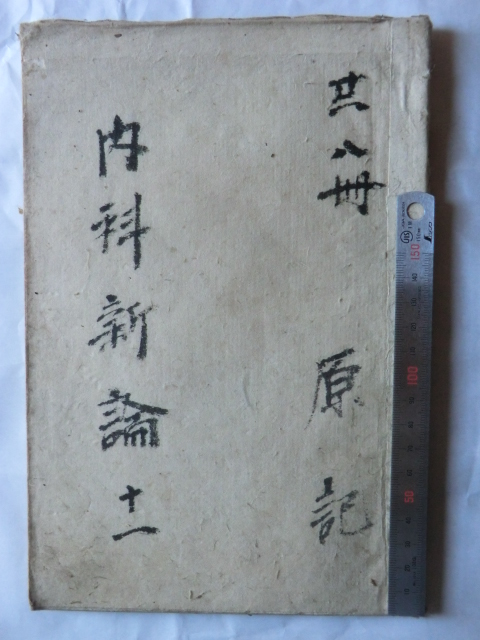 共八冊 原記
内科新論 十一
150
100
50